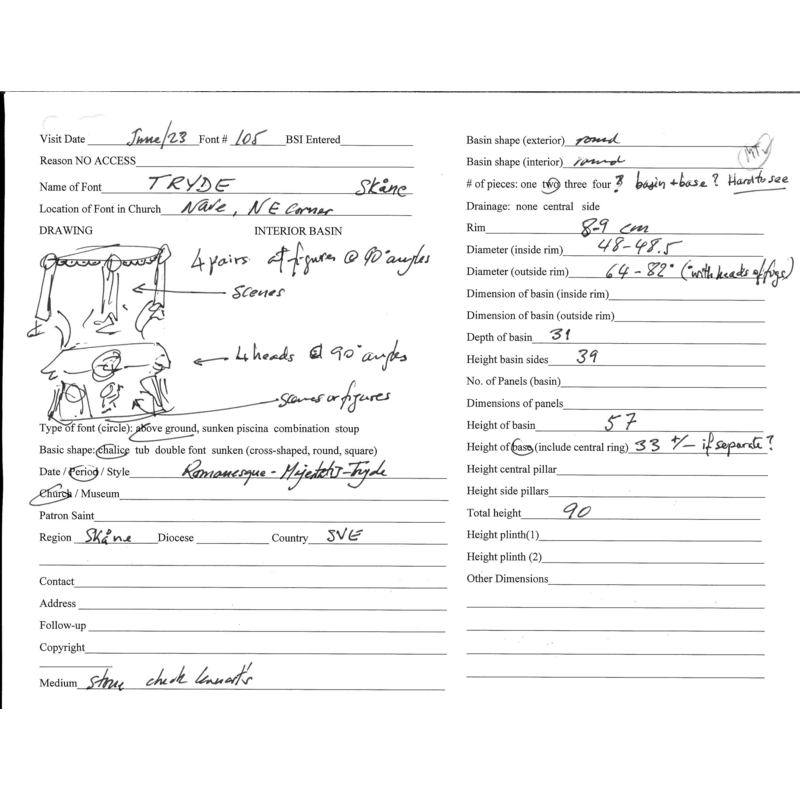 Visit Date June/23 Font # 105 BSI Entered
Reason NO ACCESS
Name of Font TRYDE Skåne
Location of Font in Church Nave, NE Corner
DRAWING INTERIOR BASIN
4 pairs of figures @ 90° angles
scenes
4 heads @ 90° angles
scenes or figures
Type of font (circle): above ground, sunken piscina combination stoup
Basic shape: chalice tub double font sunken (cross-shaped, round, square)
Date / Period / Style Romanesque - Majestatis-Tryde
Church / Museum
Patron Saint
Region Skåne Diocese Country SVE
Contact
Address
Follow-up
Copyright
Medium stone check Lennart's
Basin shape (exterior) round
Basin shape (interior) round
# of pieces: one two three four ? basin + base? Hard to see
Drainage: none central side
Rim 8-9 cm
Diameter (inside rim) 48-48.5
Diameter (outside rim) 64-82* (*with heads of figs)
Dimension of basin (inside rim)
Dimension of basin (outside rim)
Depth of basin 31
Height basin sides 39
No. of Panels (basin)
Dimensions of panels
Height of basin 57
Height of base (include central ring) 33 +/- if separate?
Height central pillar
Height side pillars
Total height 90
Height plinth(1)
Height plinth (2)
Other Dimensions